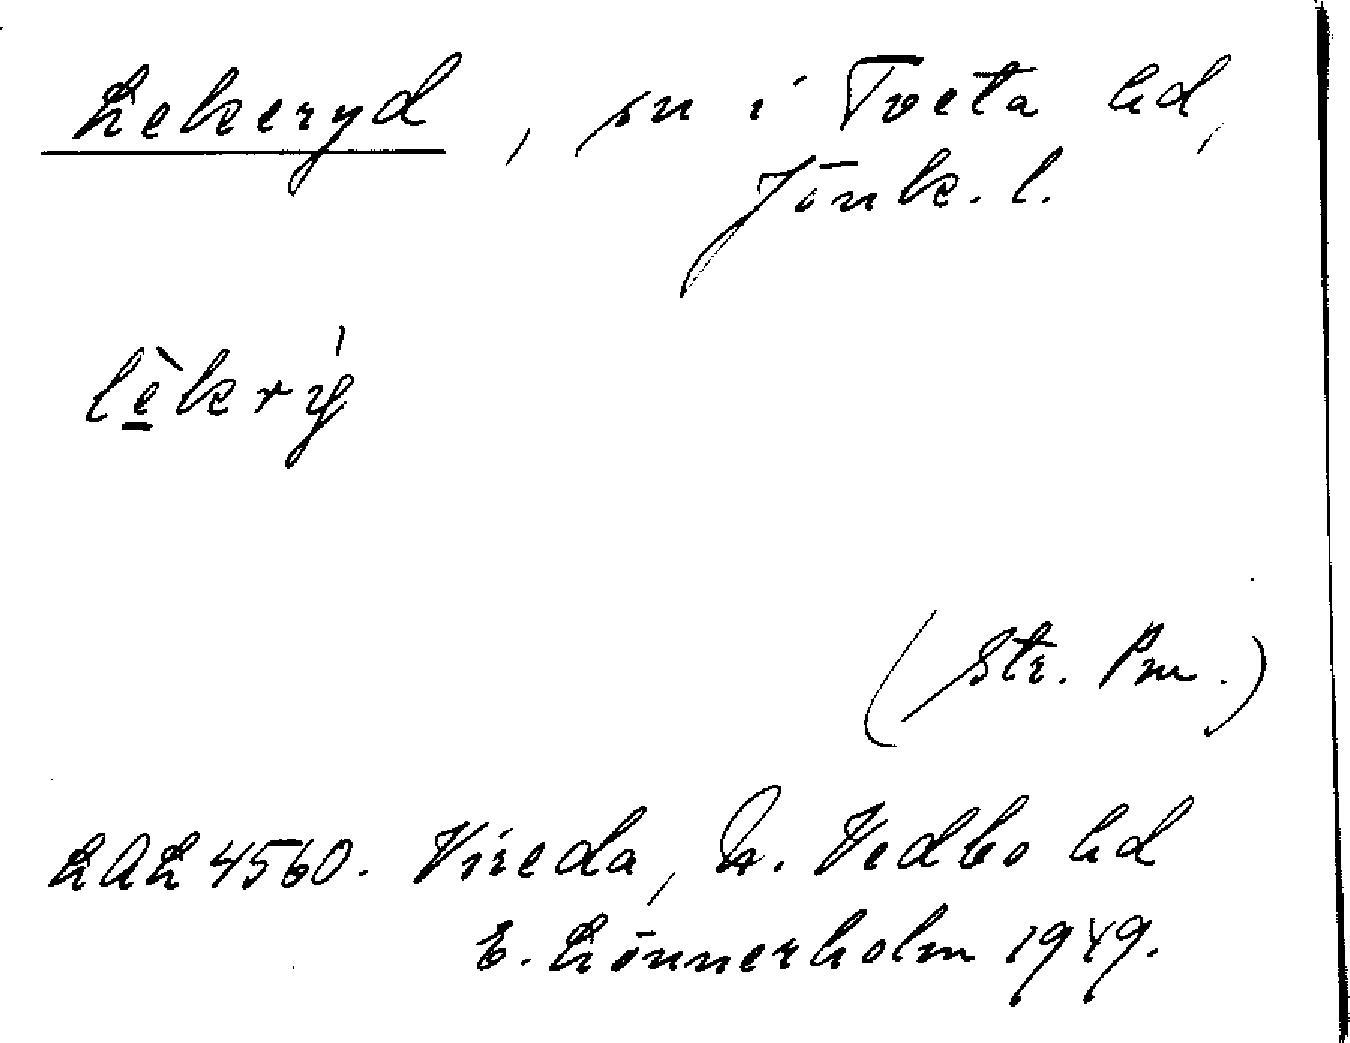 Lekeryd, sn i Tveta hd,
Jönk. l.
lèkrý
(Str. Pm.)
LAL 4560. Vireda, N. Vedbo hd
E. Lönnerholm 1949.